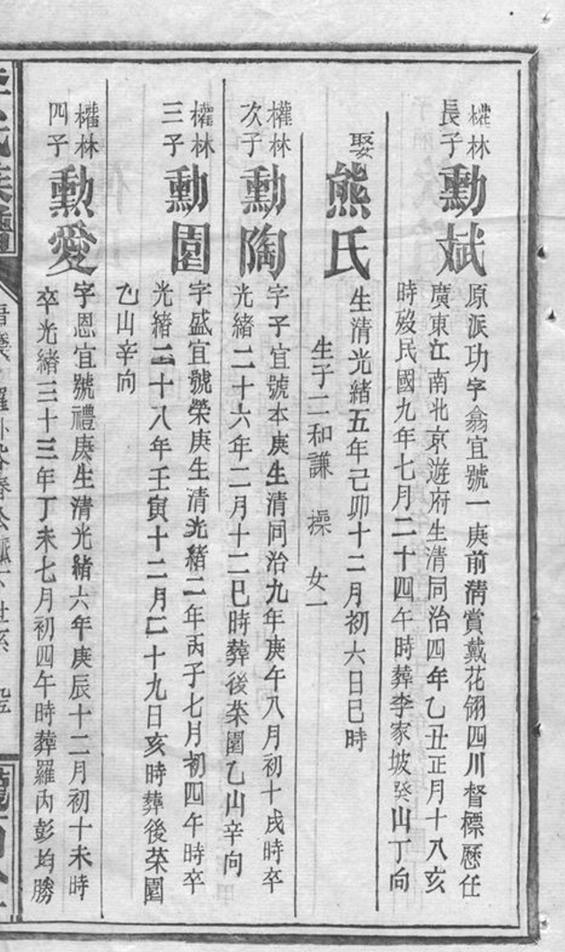 權林
長子
勳斌
原派功字翕宜號一庚前清賞戴花翎四川督標歷任
廣東江南北京遊府生清同治四年乙丑正月十八亥
時殁民國九年七月二十四午時葬李家坡癸山丁向
娶
熊氏
生清光緒五年己卯十二月初六日巳時
生子二和謙 操 女一
權林
次子
勳陶
字子宜號本庚生清同治九年庚午八月初十戌時卒
光緒二十六年二月十二巳時葬後菜園乙山辛向
權林
三子
勳園
字盛宜號榮庚生清光緒二年丙子七月初四午時卒
光緒二十八年壬寅十二月二十九日亥時葬後菜園
乙山辛向
權林
四子
勳愛
字恩宜號禮庚生清光緒六年庚辰十二月初十未時
卒光緒三十三年丁未七月初四午時葬羅內彭均勝